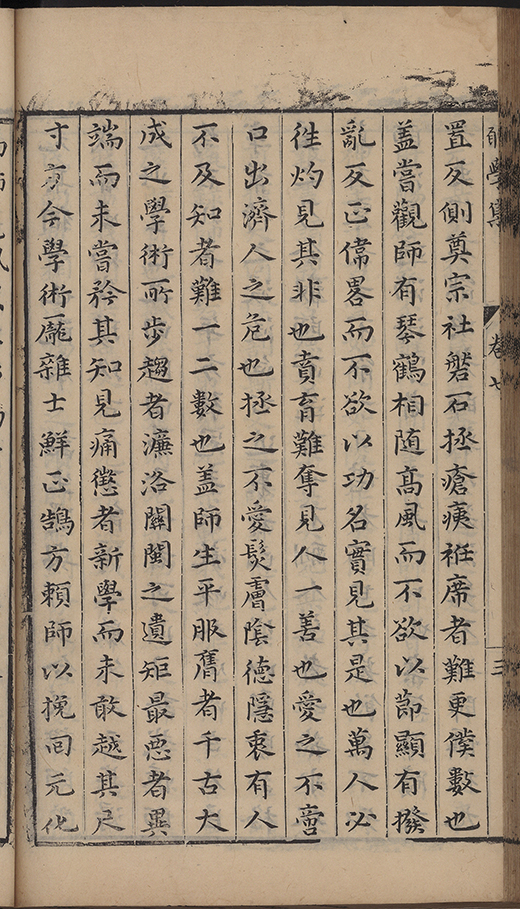 學寓
卷七
三
置反側奠宗社磐石拯瘡痍袵席者難更僕數也
盖嘗觀師有琴鶴相随髙風而不欲以節顯有撥
亂反正偉畧而不欲以功名實見其是也萬人必
徃灼見其非也賁育難奪見人一善也愛之不啻
口出濟人之危也拯之不愛髮膚陰德隱衷有人
不及知者難一二數也盖師生平服膺者千古大
成之學術所步趨者濂洛關閩之遺矩最惡者異
端而未嘗矜其知見痛懲者新學而未敢越其尺
寸方今學術龎雜士鮮正鵠方頼師以挽囘元化